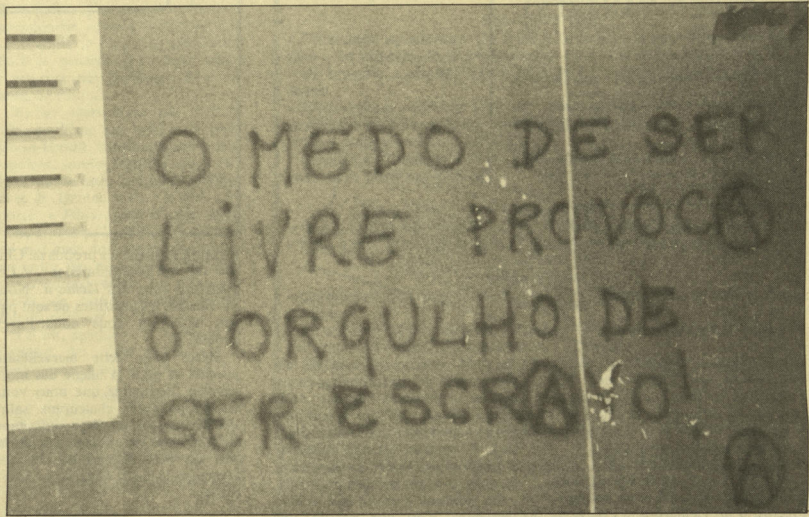 O MEDO DE SER
LiVRE PROVOCA
O ORGULHO DE
SER ESCRAVO!
A